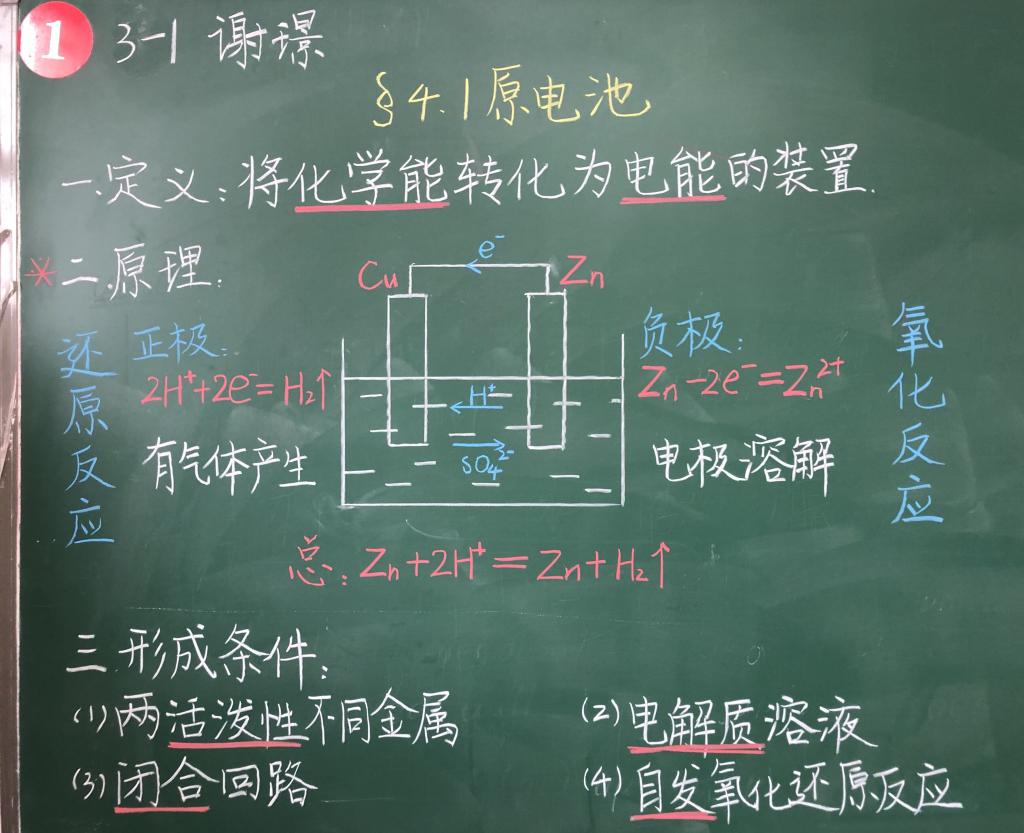 1 3-1 谢璟
§4.1原电池
一.定义:将化学能转化为电能的装置.
*二.原理:
e⁻
Cu Zn
还原反应
正极:
2H⁺+2e⁻=H₂↑
有气体产生
H⁺
SO₄²⁻
负极:
Zn-2e⁻=Zn²⁺
电极溶解
氧化反应
总:Zn+2H⁺=Zn+H₂↑
三.形成条件:
(1)两活泼性不同金属 (2)电解质溶液
(3)闭合回路 (4)自发氧化还原反应